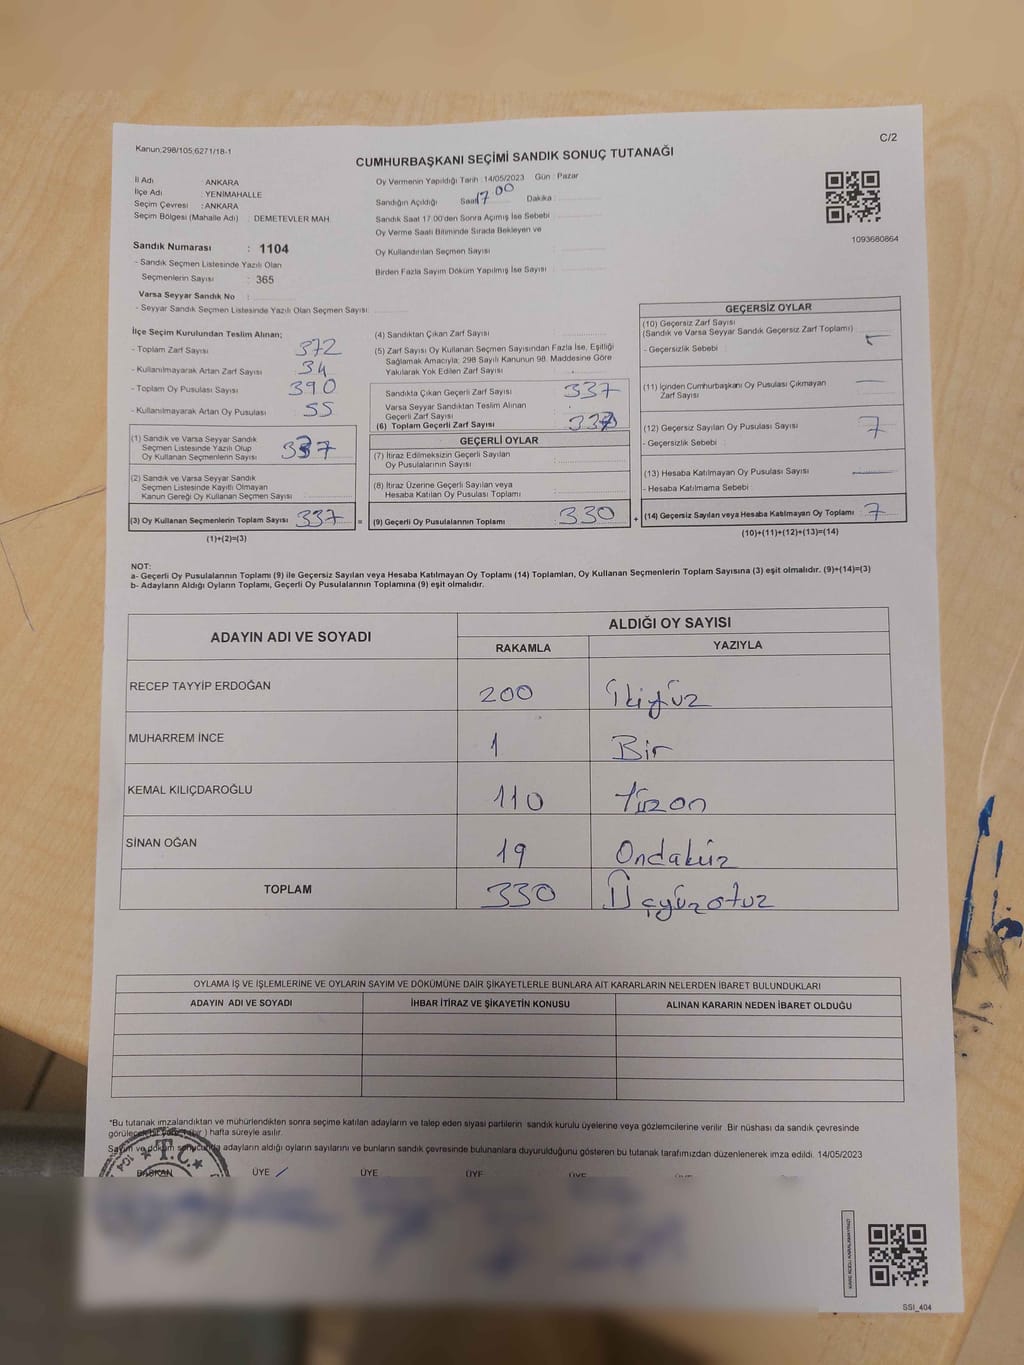 Kanun;298/105;6271/18-1
C/2
CUMHURBAŞKANI SEÇİMİ SANDIK SONUÇ TUTANAĞI
İl Adı : ANKARA
İlçe Adı : YENİMAHALLE
Seçim Çevresi : ANKARA
Seçim Bölgesi (Mahalle Adı) : DEMETEVLER MAH.
Sandık Numarası : 1104
- Sandık Seçmen Listesinde Yazılı Olan
Seçmenlerin Sayısı : 365
Varsa Seyyar Sandık No :
- Seyyar Sandık Seçmen Listesinde Yazılı Olan Seçmen Sayısı:
Oy Vermenin Yapıldığı Tarih : 14/05/2023 Gün : Pazar
Sandığın Açıldığı Saat 17.00 Dakika :
Sandık Saat 17.00'den Sonra Açımış İse Sebebi :
Oy Verme Saati Bitiminde Sırada Bekleyen ve
Oy Kullandırılan Seçmen Sayısı :
Birden Fazla Sayım Döküm Yapılmış İse Sayısı :
1093680864
İlçe Seçim Kurulundan Teslim Alınan;
- Toplam Zarf Sayısı 372
- Kullanılmayarak Artan Zarf Sayısı 34
- Toplam Oy Pusulası Sayısı 390
- Kullanılmayarak Artan Oy Pusulası 55
(1) Sandık ve Varsa Seyyar Sandık
Seçmen Listesinde Yazılı Olup
Oy Kullanan Seçmenlerin Sayısı 337
(2) Sandık ve Varsa Seyyar Sandık
Seçmen Listesinde Kayıtlı Olmayan
Kanun Gereği Oy Kullanan Seçmen Sayısı
(3) Oy Kullanan Seçmenlerin Toplam Sayısı 337
(1)+(2)=(3)
=
(4) Sandıktan Çıkan Zarf Sayısı :
(5) Zarf Sayısı Oy Kullanan Seçmen Sayısından Fazla İse, Eşitliği
Sağlamak Amacıyla; 298 Sayılı Kanunun 98. Maddesine Göre
Yakılarak Yok Edilen Zarf Sayısı :
Sandıkta Çıkan Geçerli Zarf Sayısı 337
Varsa Seyyar Sandıktan Teslim Alınan
Geçerli Zarf Sayısı
(6) Toplam Geçerli Zarf Sayısı 337
GEÇERLİ OYLAR
(7) İtiraz Edilmeksizin Geçerli Sayılan
Oy Pusulalarının Sayısı :
(8) İtiraz Üzerine Geçerli Sayılan veya
Hesaba Katılan Oy Pusulası Toplamı :
(9) Geçerli Oy Pusulalarının Toplamı : 330
+
GEÇERSİZ OYLAR
(10) Geçersiz Zarf Sayısı
(Sandık ve Varsa Seyyar Sandık Geçersiz Zarf Toplamı) :
- Geçersizlik Sebebi :
(11) İçinden Cumhurbaşkanı Oy Pusulası Çıkmayan
Zarf Sayısı
(12) Geçersiz Sayılan Oy Pusulası Sayısı : 7
- Geçersizlik Sebebi :
(13) Hesaba Katılmayan Oy Pusulası Sayısı
- Hesaba Katılmama Sebebi :
(14) Geçersiz Sayılan veya Hesaba Katılmayan Oy Toplamı : 7
(10)+(11)+(12)+(13)=(14)
NOT:
a- Geçerli Oy Pusulalarının Toplamı (9) ile Geçersiz Sayılan veya Hesaba Katılmayan Oy Toplamı (14) Toplamları, Oy Kullanan Seçmenlerin Toplam Sayısına (3) eşit olmalıdır. (9)+(14)=(3)
b- Adayların Aldığı Oyların Toplamı, Geçerli Oy Pusulalarının Toplamına (9) eşit olmalıdır.
ADAYIN ADI VE SOYADI ALDIĞI OY SAYISI
RAKAMLA YAZIYLA
RECEP TAYYİP ERDOĞAN 200 İkiyüz
MUHARREM İNCE 1 Bir
KEMAL KILIÇDAROĞLU 110 Yüzon
SİNAN OĞAN 19 Ondokuz
TOPLAM 330 Üçyüzotuz
OYLAMA İŞ VE İŞLEMLERİNE VE OYLARIN SAYIM VE DÖKÜMÜNE DAİR ŞİKAYETLERLE BUNLARA AİT KARARLARIN NELERDEN İBARET BULUNDUKLARI
ADAYIN ADI VE SOYADI İHBAR İTİRAZ VE ŞİKAYETİN KONUSU ALINAN KARARIN NEDEN İBARET OLDUĞU
*Bu tutanak imzalandıktan ve mühürlendikten sonra seçime katılan adayların ve talep eden siyasi partilerin sandık kurulu üyelerine veya gözlemcilerine verilir .Bir nüshası da sandık çevresinde
görülecek bir yere ( bir ) hafta süreyle asılır.
Sayım ve döküm sonucunda adayların aldığı oyların sayılarını ve bunların sandık çevresinde bulunanlara duyurulduğunu gösteren bu tutanak tarafımızdan düzenlenerek imza edildi. 14/05/2023
T.C.
BAŞKAN ÜYE ÜYE ÜYE ÜYE
SSI_404